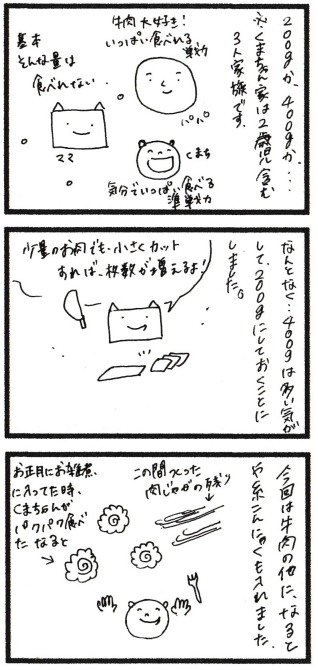 200gか、400gか…
※くまちゃん家は2歳児含む
3人家族です。
牛肉大好き!
いっぱい食べれる
戦力
パパ
基本
そんな量は
食べれない
ママ
くまち
気分でいっぱい食べる
準戦力
なんとなく…400gは多い気が
して、200gにしておくことに
しました。
少量のお肉でも小さくカット
すれば、枚数が増えるよ!
今回は牛肉の他に、なると
や糸こんにゃくも入れました。
この間つくった
肉じゃがの残り
お正月にお雑煮
に入ってた時、
くまちゃんが
パクパク食べ
た なると